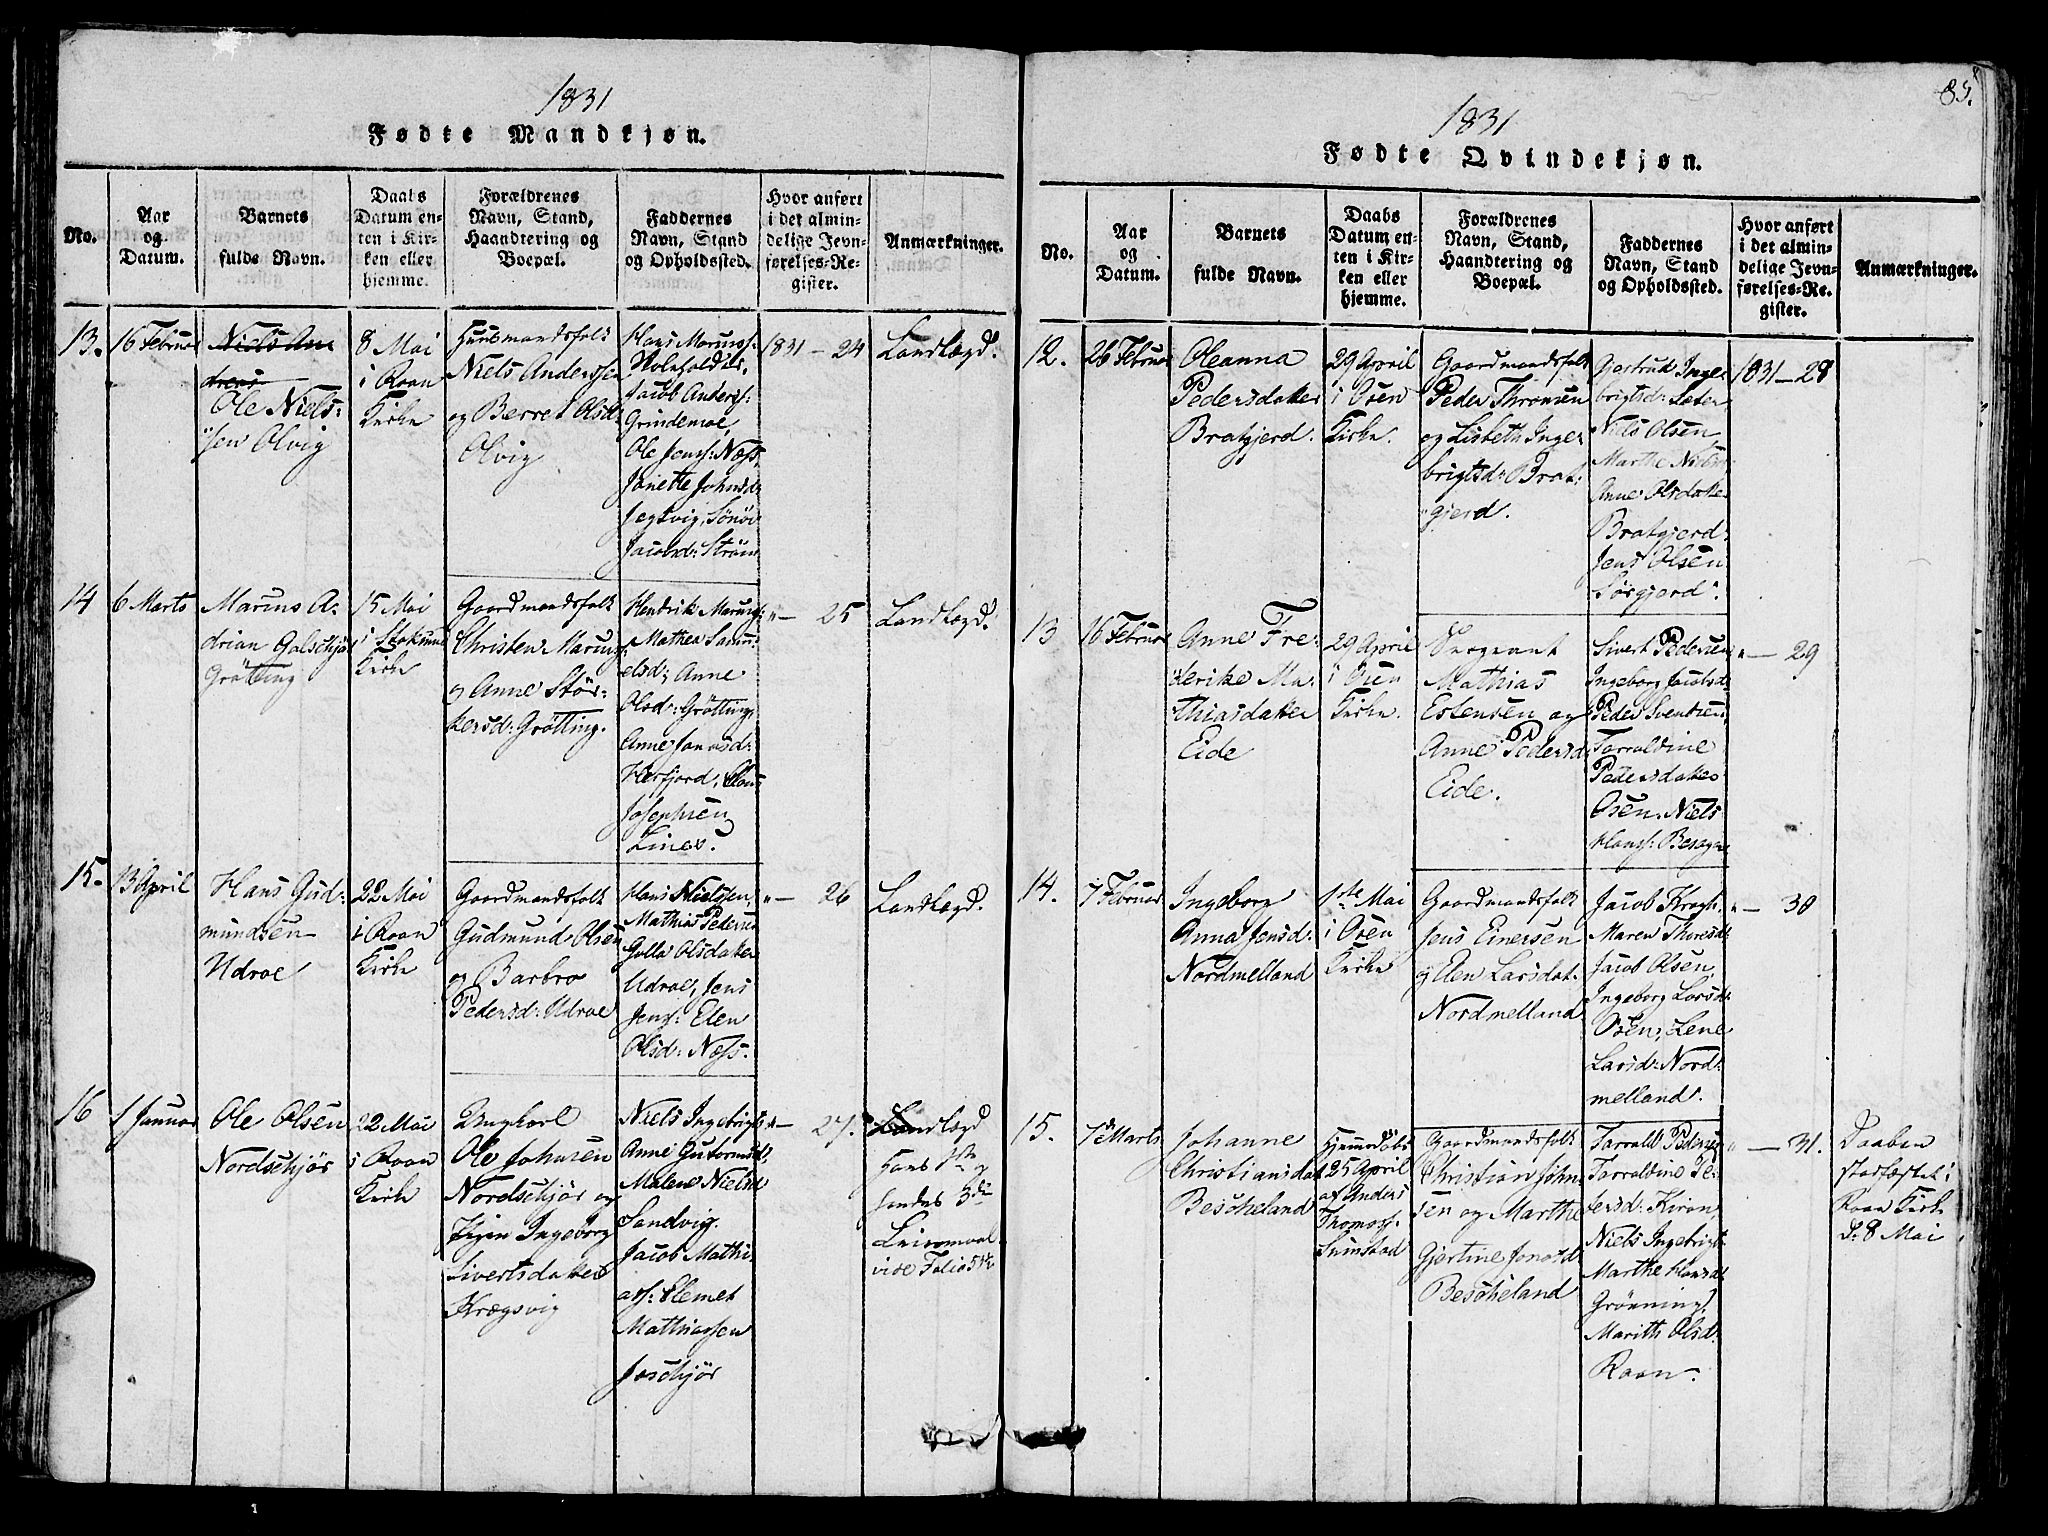 1831
Fødte Mandkjøn.
No.
Aar
og
Datum.
Barnets
fulde Navn.
Daabs
Datum en-
ten i Kir-
ken eller
hjemme.
Forældrenes
Navn, Stand,
Haandtering og
Boepæl.
Faddernes
Navn, Stand
og Opholdssted.
Hvor anført
i det almin-
delige Jevn-
førelses-Re-
gister.
Anmærkninger.
13.
16 Februar
Niels An
dreas
Ole Niels:
sen Olvig
8 Mai
i Roan
Kirke
Huusmandsfolk
Niels Anderssen
og Berret Olsd:
Olvig
Hans Maruss:
Jacob Anderss:
Grindemoe,
Ole Jenss: Næss,
Janette Johnsd:
Jegtvig, Sönöv
Jacobsd: Ström
1831 - 24
Landlægd.
14
6 Marts
Marius A-
drian Galschjør
Grötting
15 Mai
i Stoksund
Kirke
Gaardmandsfolk
Christen Maruss:
og Anne Stör-
kersd: Grötting.
Hendrik Maruss:
Mathea Samu-
elsd: Anne
Olsd: Grötting,
Anne Jonasd:
Herfjord, Claus
Josephsen
Lines.
" - 25
Landlægd.
15.
13 April
Hans Gud-
mundsen
Udroe
22 Mai
i Roan
Kirke
Gaardmandsfolk
Gudmund Olsen
og Barbro
Pedersd: Udroe
Hans Nielssen,
Mathias Peders:
Golla Olsdatter
Udroe, Jens
Jenss: Elen
Olsd: Næss.
" - 26
Landlægd.
16
1 Januar
Ole Olsen
Nordschjör
22 Mai
i Roan
Kirke
Ungkarl
Ole Johnsen
Nordschjör og
Pigen Ingeborg
Sivertsdatter
Krægsvig
Niels Ingebrigts:
Anne Gutormsd:
Malene Nielsd
Sandvig.
Jacob Mathi-
ass: Elemet
Mathiassen
Joschjör
" - 27.
Landlægd
Hans 1ste og
hendes 3die
Leiermaal
vide Folio 54
1831
85.
Fødte Qvindekjøn.
No.
Aar
og
Datum.
Barnets
fulde Navn.
Daabs
Datum en-
ten i Kir-
ken eller
hjemme.
Forældrenes
Navn, Stand,
Haandtering og
Boepæl.
Faddernes
Navn, Stand
og Opholdssted.
Hvor anført
i det almin-
delige Jevn-
førelses-Re-
gister.
Anmærkninger.
12.
26 Februar
Oleanna
Pedersdatter
Bratgjerd.
29 April
i Osen
Kirke.
Gaardmandsfolk
Peder Thronsen
og Lisbeth Inge-
brigtsd: Brat-
gjerd.
Gjertrud Inge-
brigtsd: Sæter
Niels Olsen,
Marthe Nielsd
Anne Olsdatter
Bratgjerd.
Jens Olsen
Sørgjerd.
1831 - 28
13
16 Februar
Anne Fre-
derike Ma-
thiasdatter
Eide
29 April
i Osen
Kirke.
Sergeant
Mathias
Estensen og
Anne Pedersd
Eide.
Sivert Pedersen
Ingeborg Jacobsd:
Peder Svendsen
Tarraldine
Pedersdatter
Osen. Niels
Hanss: Besage
" - 29
14.
7 Februar
Ingeborg
Anna Jensd:
Nordmelland
1ste Mai
i Osen
Kirke
Gaardmandsfolk
Jens Einersen
og Elen Larsdat.
Nordmelland
Jacob Kragh.
Maren Thoresd:
Jacob Olsen,
Ingeborg Larsd:
Osen, Lene
Larsd: Nord-
melland.
" - 30
15.
7de Marts
Johanne
Christiansdat
Bescheland
Hjemmedöbt
25 April
af Anders
Thomass:
Sumstad
Gaardmandsfolk
Christian John-
sen og Marthe
Gjertine Jonasd
Bescheland
Tarrald Pedersen
Tarraldine Pe-
dersd: Kiran
Niels Ingebrigt.
Marthe Hansd:
Grönning.
Marith Olsd:
Roan.
" - 31.
Daaben
stadfæstet i
Roan Kirke
D. 8 Mai